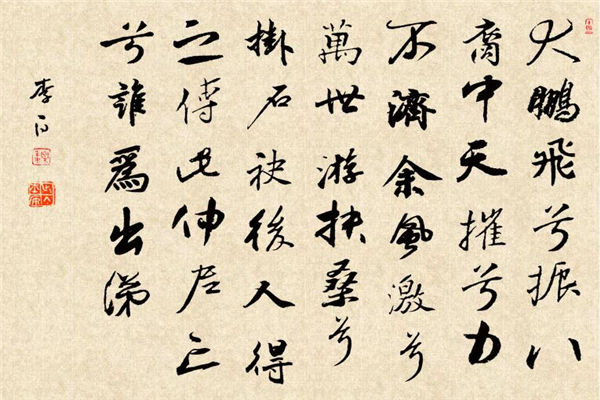 大鵬飛兮振八
裔中天摧兮力
不濟余風激兮
萬世游扶桑兮
掛石袂後人得
之傳此仲尼亡
兮誰爲出涕
李白